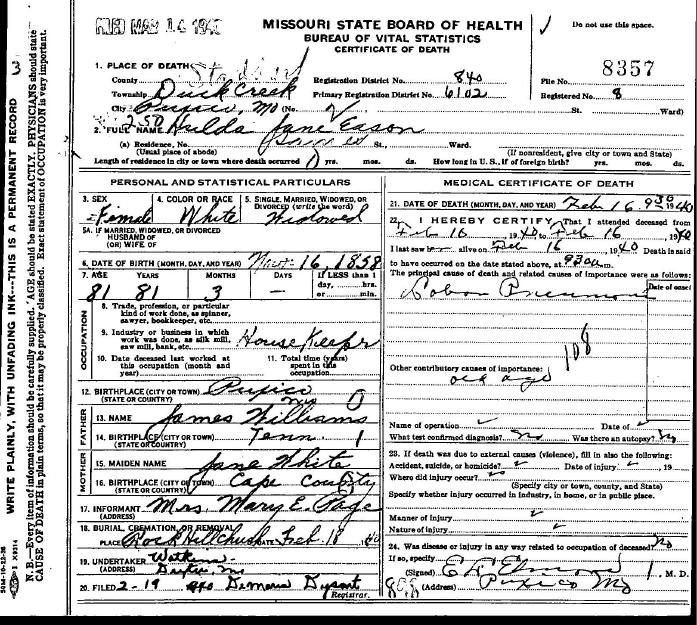 FILED MAY 14 1940
MISSOURI STATE BOARD OF HEALTH
BUREAU OF VITAL STATISTICS
CERTIFICATE OF DEATH
Do not use this space.
1. PLACE OF DEATH
County Stoddard Registration District No. 840 File No. 8357
Township Duck Creek Primary Registration District No. 6102 Registered No. 8
City Puxico, Mo (No. St. Ward)
2. FULL NAME Hulda Jane Eason
(a) Residence, No. St., Ward.
(Usual place of abode) (If nonresident, give city or town and State)
Length of residence in city or town where death occurred yrs. mos. ds. How long in U. S., if of foreign birth? yrs. mos. ds.
PERSONAL AND STATISTICAL PARTICULARS
3. SEX Female
4. COLOR OR RACE White
5. SINGLE, MARRIED, WIDOWED, OR DIVORCED (write the word) Widowed
5A. IF MARRIED, WIDOWED, OR DIVORCED
HUSBAND OF
(OR) WIFE OF
6. DATE OF BIRTH (MONTH, DAY, AND YEAR) Nov. 16, 1858
7. AGE YEARS MONTHS DAYS If LESS than 1
81 81 3 — day, hrs.
or min.
OCCUPATION
8. Trade, profession, or particular
kind of work done, as spinner,
sawyer, bookkeeper, etc.
9. Industry or business in which
work was done, as silk mill,
saw mill, bank, etc. House Keeper
10. Date deceased last worked at
this occupation (month and
year)
11. Total time (years)
spent in this
occupation
12. BIRTHPLACE (CITY OR TOWN) Puxico
(STATE OR COUNTRY) Mo
FATHER
13. NAME James Williams
14. BIRTHPLACE (CITY OR TOWN) Tenn.
(STATE OR COUNTRY)
MOTHER
15. MAIDEN NAME Jane White
16. BIRTHPLACE (CITY OR TOWN) Cape County
(STATE OR COUNTRY)
17. INFORMANT Mrs. Mary E. Page
(ADDRESS)
18. BURIAL, CREMATION, OR REMOVAL
PLACE Rock Hill Church DATE Feb. 18 1940
19. UNDERTAKER Watkins
(ADDRESS) Dexter, Mo
20. FILED 2-19 1940
Registrar.
MEDICAL CERTIFICATE OF DEATH
21. DATE OF DEATH (MONTH, DAY, AND YEAR) Feb 16, 1940
22. I HEREBY CERTIFY, That I attended deceased from
Feb 16, 1940 to Feb 16, 1940
I last saw h alive on Feb 16, 1940 Death is said
to have occurred on the date stated above, at 930 a m.
The principal cause of death and related causes of importance were as follows:
Date of onset
Lobar Pneumonia
108
Other contributory causes of importance:
old age
Name of operation Date of
What test confirmed diagnosis? No Was there an autopsy? No
23. If death was due to external causes (violence), fill in also the following:
Accident, suicide, or homicide? Date of injury , 19
Where did injury occur?
(Specify city or town, county, and State)
Specify whether injury occurred in industry, in home, or in public place.
Manner of injury
Nature of injury
24. Was disease or injury in any way related to occupation of deceased? No
If so, specify
(Signed) , M. D.
(Address) Puxico Mo
WRITE PLAINLY, WITH UNFADING INK---THIS IS A PERMANENT RECORD
N. B.—Every item of information should be carefully supplied. AGE should be stated EXACTLY. PHYSICIANS should state
CAUSE OF DEATH in plain terms, so that it may be properly classified. Exact statement of OCCUPATION is very important.